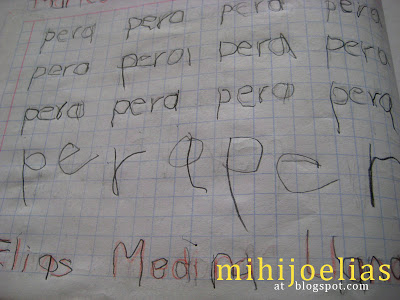 pera pera pera pera
pera pera pera pera
pera pera pera pera
pera per
Elias
mihijoelias
at blogspot.com